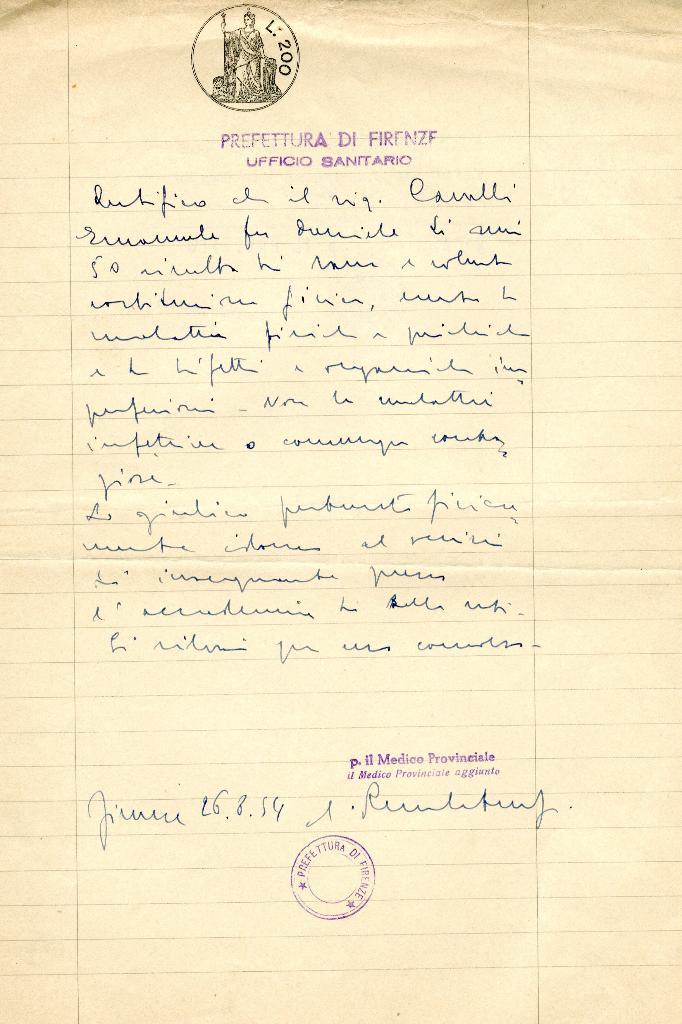 L: 200
PREFETTURA DI FIRENZE
UFFICIO SANITARIO
Certifico che il sig. Cavalli
Emanuele fu Daniele di anni
50 risulta di sana e robusta
costituzione fisica, esente da
malattie fisiche e psichiche
e da difetti e organiche im=
perfezioni - Non ha malattie
infettive o comunque conta=
giose.
Lo giudico pertanto fisica=
mente idoneo al servizio
di insegnante presso
l'accademia di belle arti.
Si rilascia per uso concorso.
p. il Medico Provinciale
il Medico Provinciale aggiunto
Firenze 26.8.54
★ PREFETTURA DI FIRENZE ★